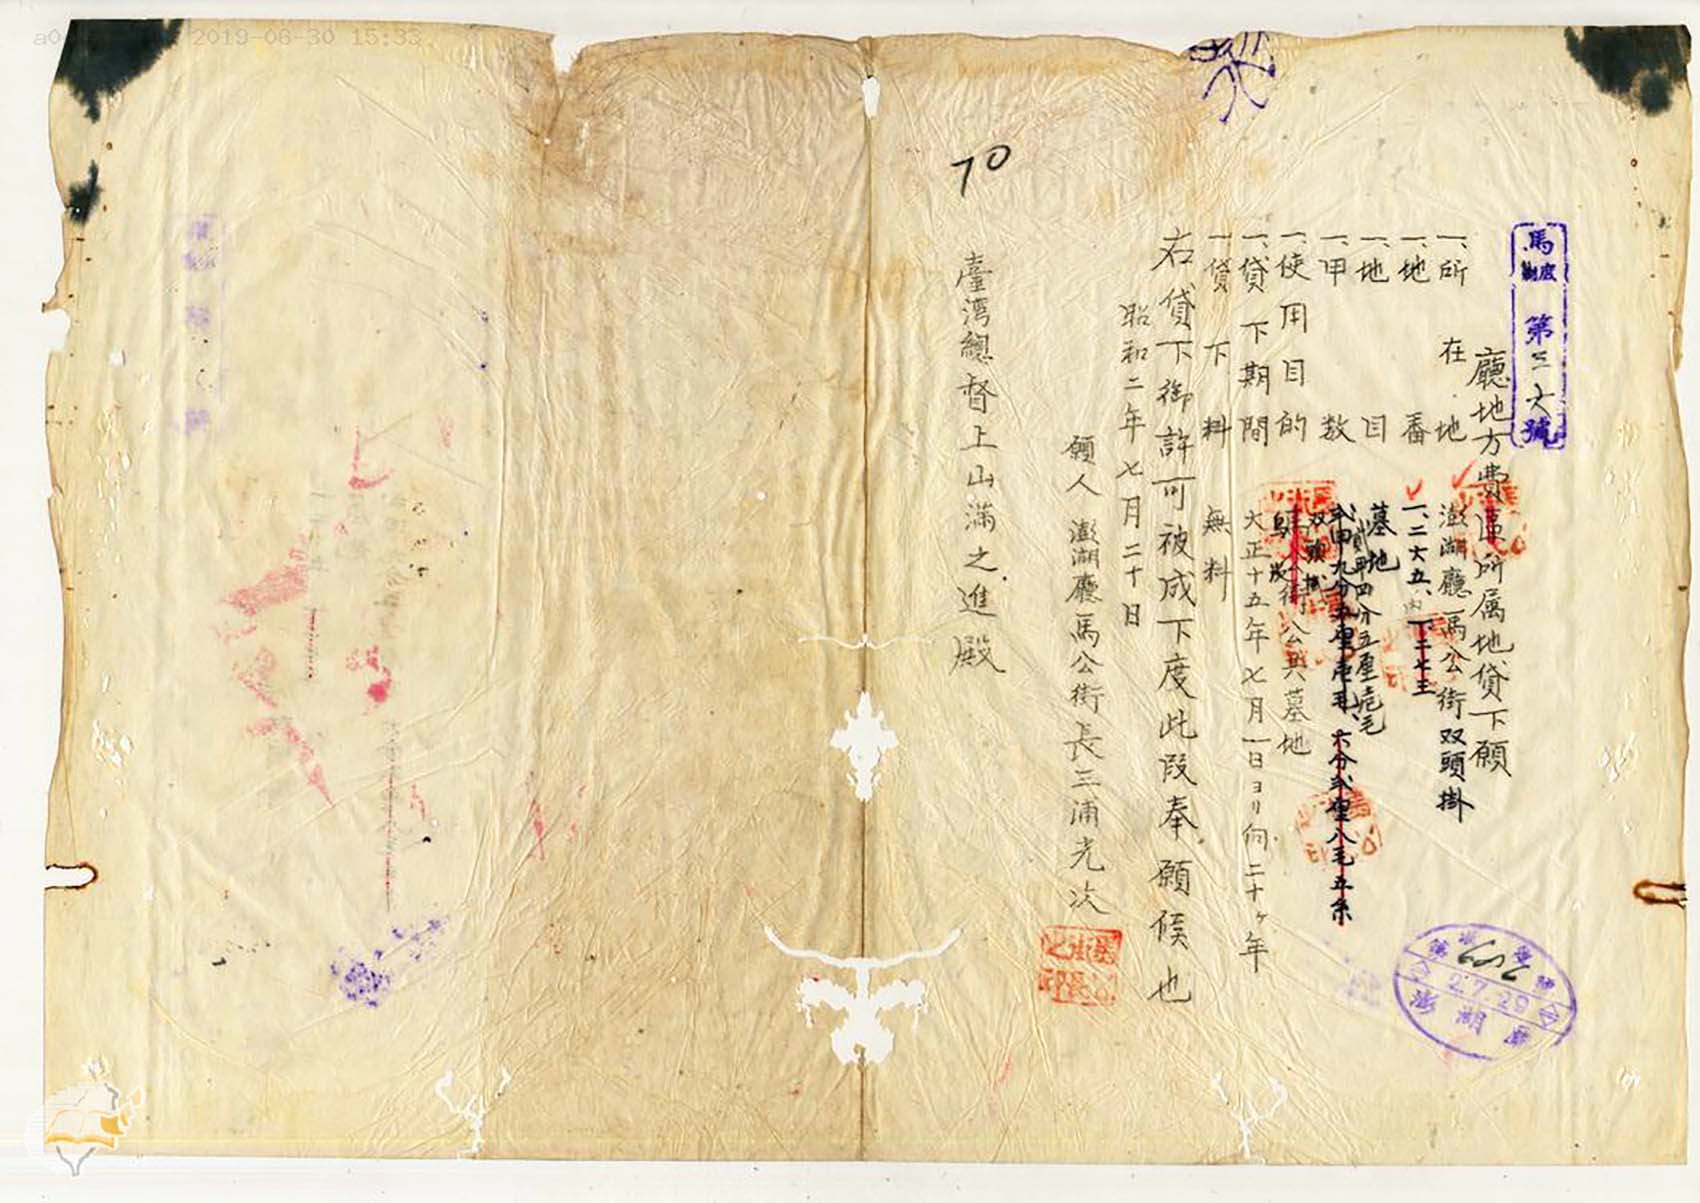 馬 第三六號
廳地方費區所属地貸下願
一、所在地 澎湖廳馬公街双頭掛
一、地番 一、二六五、内
一、地目 墓地
一、甲数 貳甲四分五厘
六分弐厘八毛五糸
双頭掛
一、使用目的 公共墓地
一、貸下期間 大正十五年七月一日ヨリ向二十ヶ年
一、貸下料 無料
右貸下御許可被成下度此段奉願候也
昭和二年七月二十日
願人 澎湖廳馬公街長三浦光次
臺湾總督上山滿之進殿
70
2.7.29
澎湖廳
2019-06-30 15:33